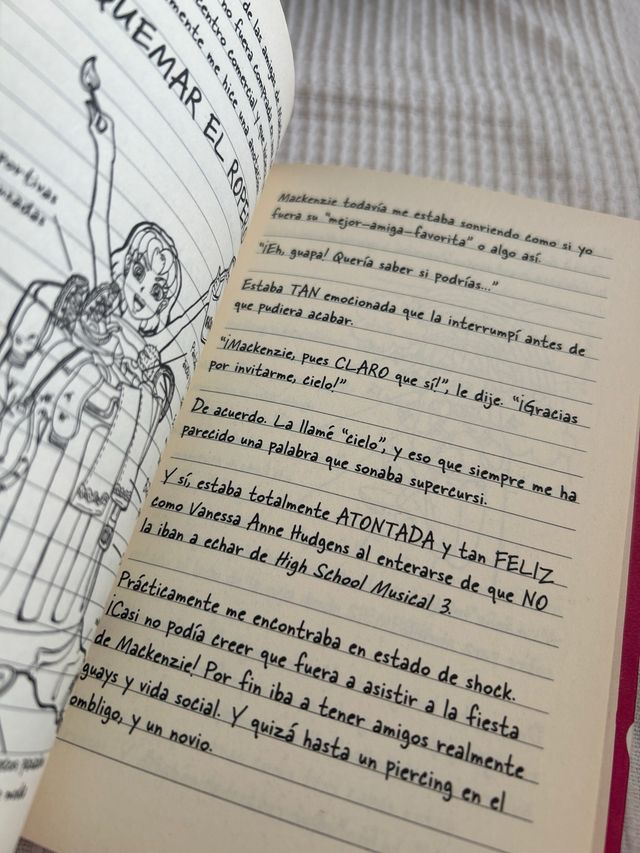 de las amigas de
no fuera comprada en
centro comercial y que
mente me hice una
QUEMAR EL ROPE
portivas
usadas
Mackenzie todavía me estaba sonriendo como si yo
fuera su "mejor-amiga-favorita" o algo así.
"¡Eh, guapa! Quería saber si podrías..."
Estaba TAN emocionada que la interrumpí antes de
que pudiera acabar.
"¡Mackenzie, pues CLARO que sí!", le dije. "¡Gracias
por invitarme, cielo!"
De acuerdo. La llamé "cielo", y eso que siempre me ha
parecido una palabra que sonaba supercursi.
Y sí, estaba totalmente ATONTADA y tan FELIZ
como Vanessa Anne Hudgens al enterarse de que NO
la iban a echar de High School Musical 3.
Prácticamente me encontraba en estado de shock.
¡Casi no podía creer que fuera a asistir a la fiesta
de Mackenzie! Por fin iba a tener amigos realmente
guays y vida social. Y quizá hasta un piercing en el
ombligo, y un novio.